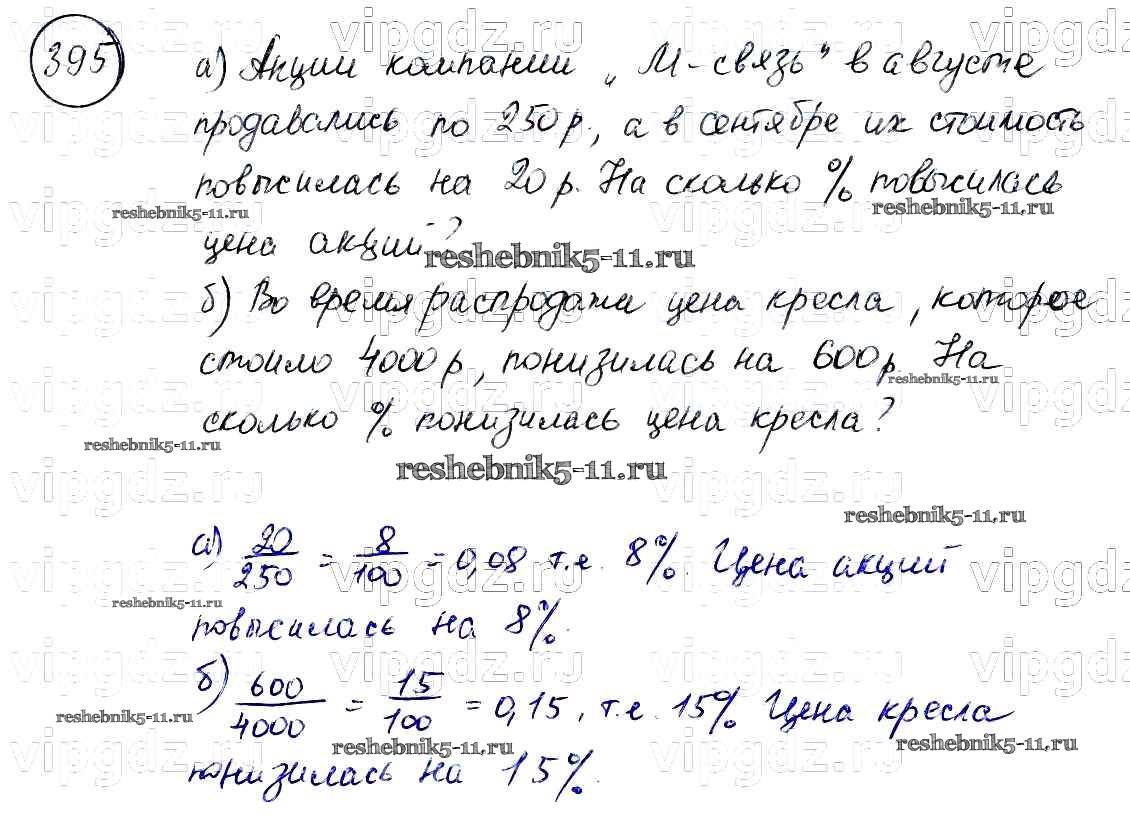 395
а) Акции компании „М-связь" в августе
продавались по 250 р., а в сентябре их стоимость
повысилась на 20 р. На сколько % повысилась
цена акций?
б) Во время распродажи цена кресла, которое
стоило 4000 р, понизилась на 600 р. На
сколько % понизилась цена кресла?
а) 20/250 = 8/100 = 0,08 т.е. 8%. Цена акций
повысилась на 8%.
б) 600/4000 = 15/100 = 0,15, т.е. 15% Цена кресла
понизилась на 15%.
vipgdz.ru
reshebnik5-11.ru